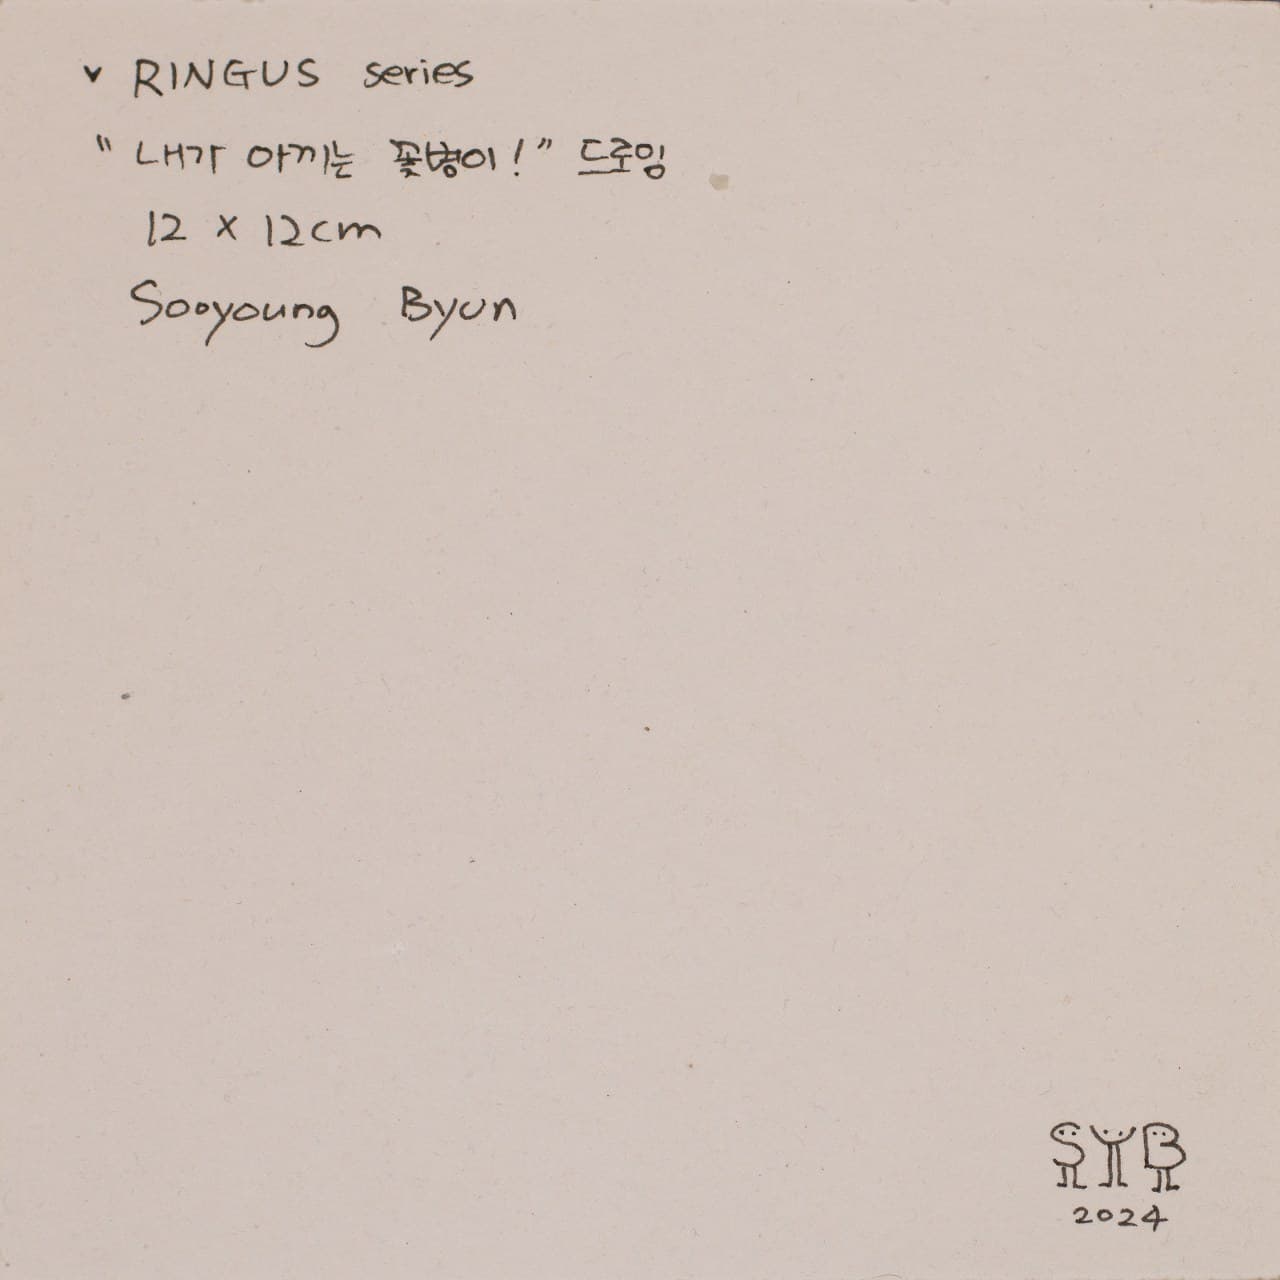 v RINGUS series
"내가 아끼는 꽃병이!" 드로잉
12 x 12cm
Sooyoung Byun
SYB
2024